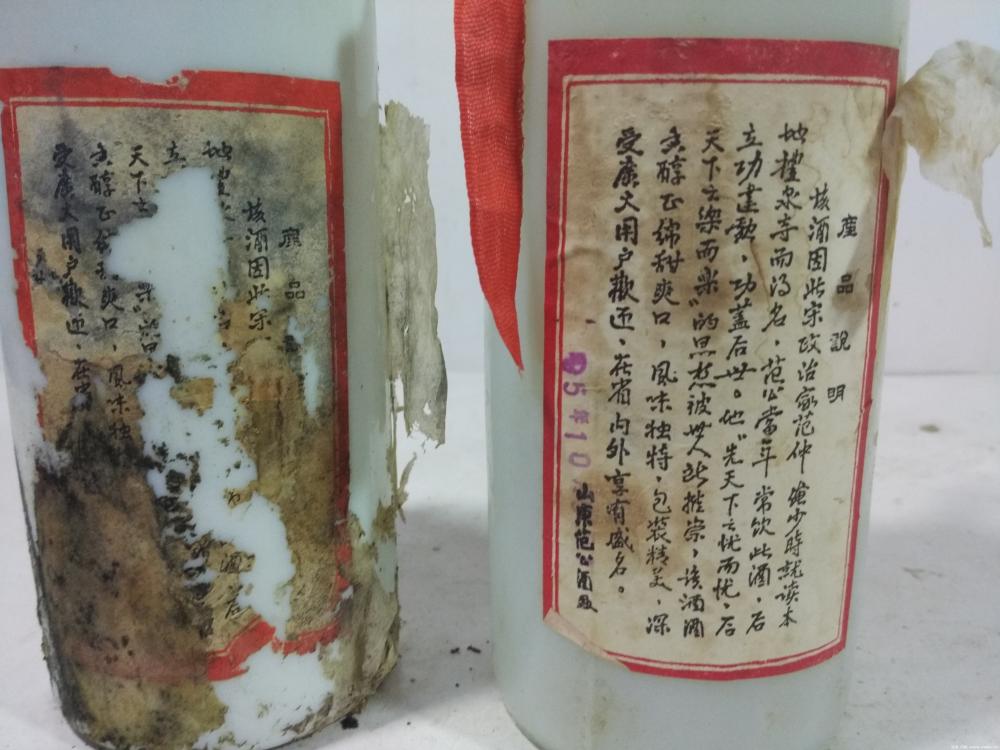 產品
该酒因北宋
地醴
立
天下之
香醇正绵 爽口，風味独
受廣大用户歡迎，在
產品説明
该酒因北宋政治家范仲 淹少時就读本
地醴泉寺而得名，范公常年 常饮此酒，后
立功建勳，功盖后世。他“先天下之忧而忧，后
天下之樂而樂”的思想被世人所推崇，该酒酒
香醇正绵甜爽口，風味独特，包装精美，深
受廣大用户歡迎，在省内外享有盛名。
95年10
山東范公酒厰